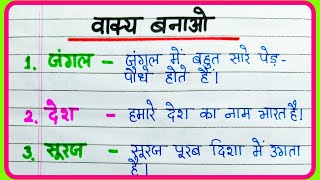 वाक्य बनाओ
1. जंगल – जंगल में बहुत सारे पेड़-
पौधे होते हैं।
2. देश – हमारे देश का नाम भारत है।
3. सूरज – सूरज पूरब दिशा में उगता
है।